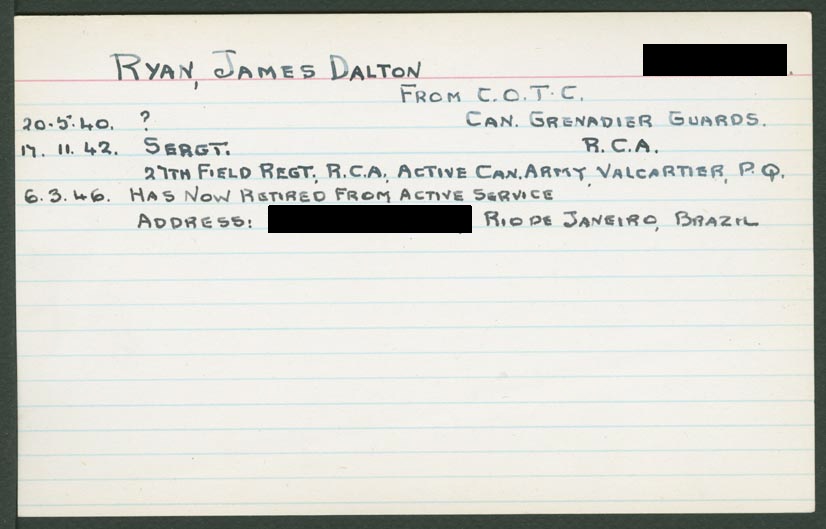 RYAN, JAMES DALTON
FROM C.O.T.C.
20.5.40. ? CAN. GRENADIER GUARDS.
17. 11. 42. SERGT. R.C.A.
27TH FIELD REGT, R.C.A, ACTIVE CAN. ARMY, VALCARTIER, P.Q.
6.3.46. HAS NOW RETIRED FROM ACTIVE SERVICE
ADDRESS: RIO DE JANEIRO, BRAZIL